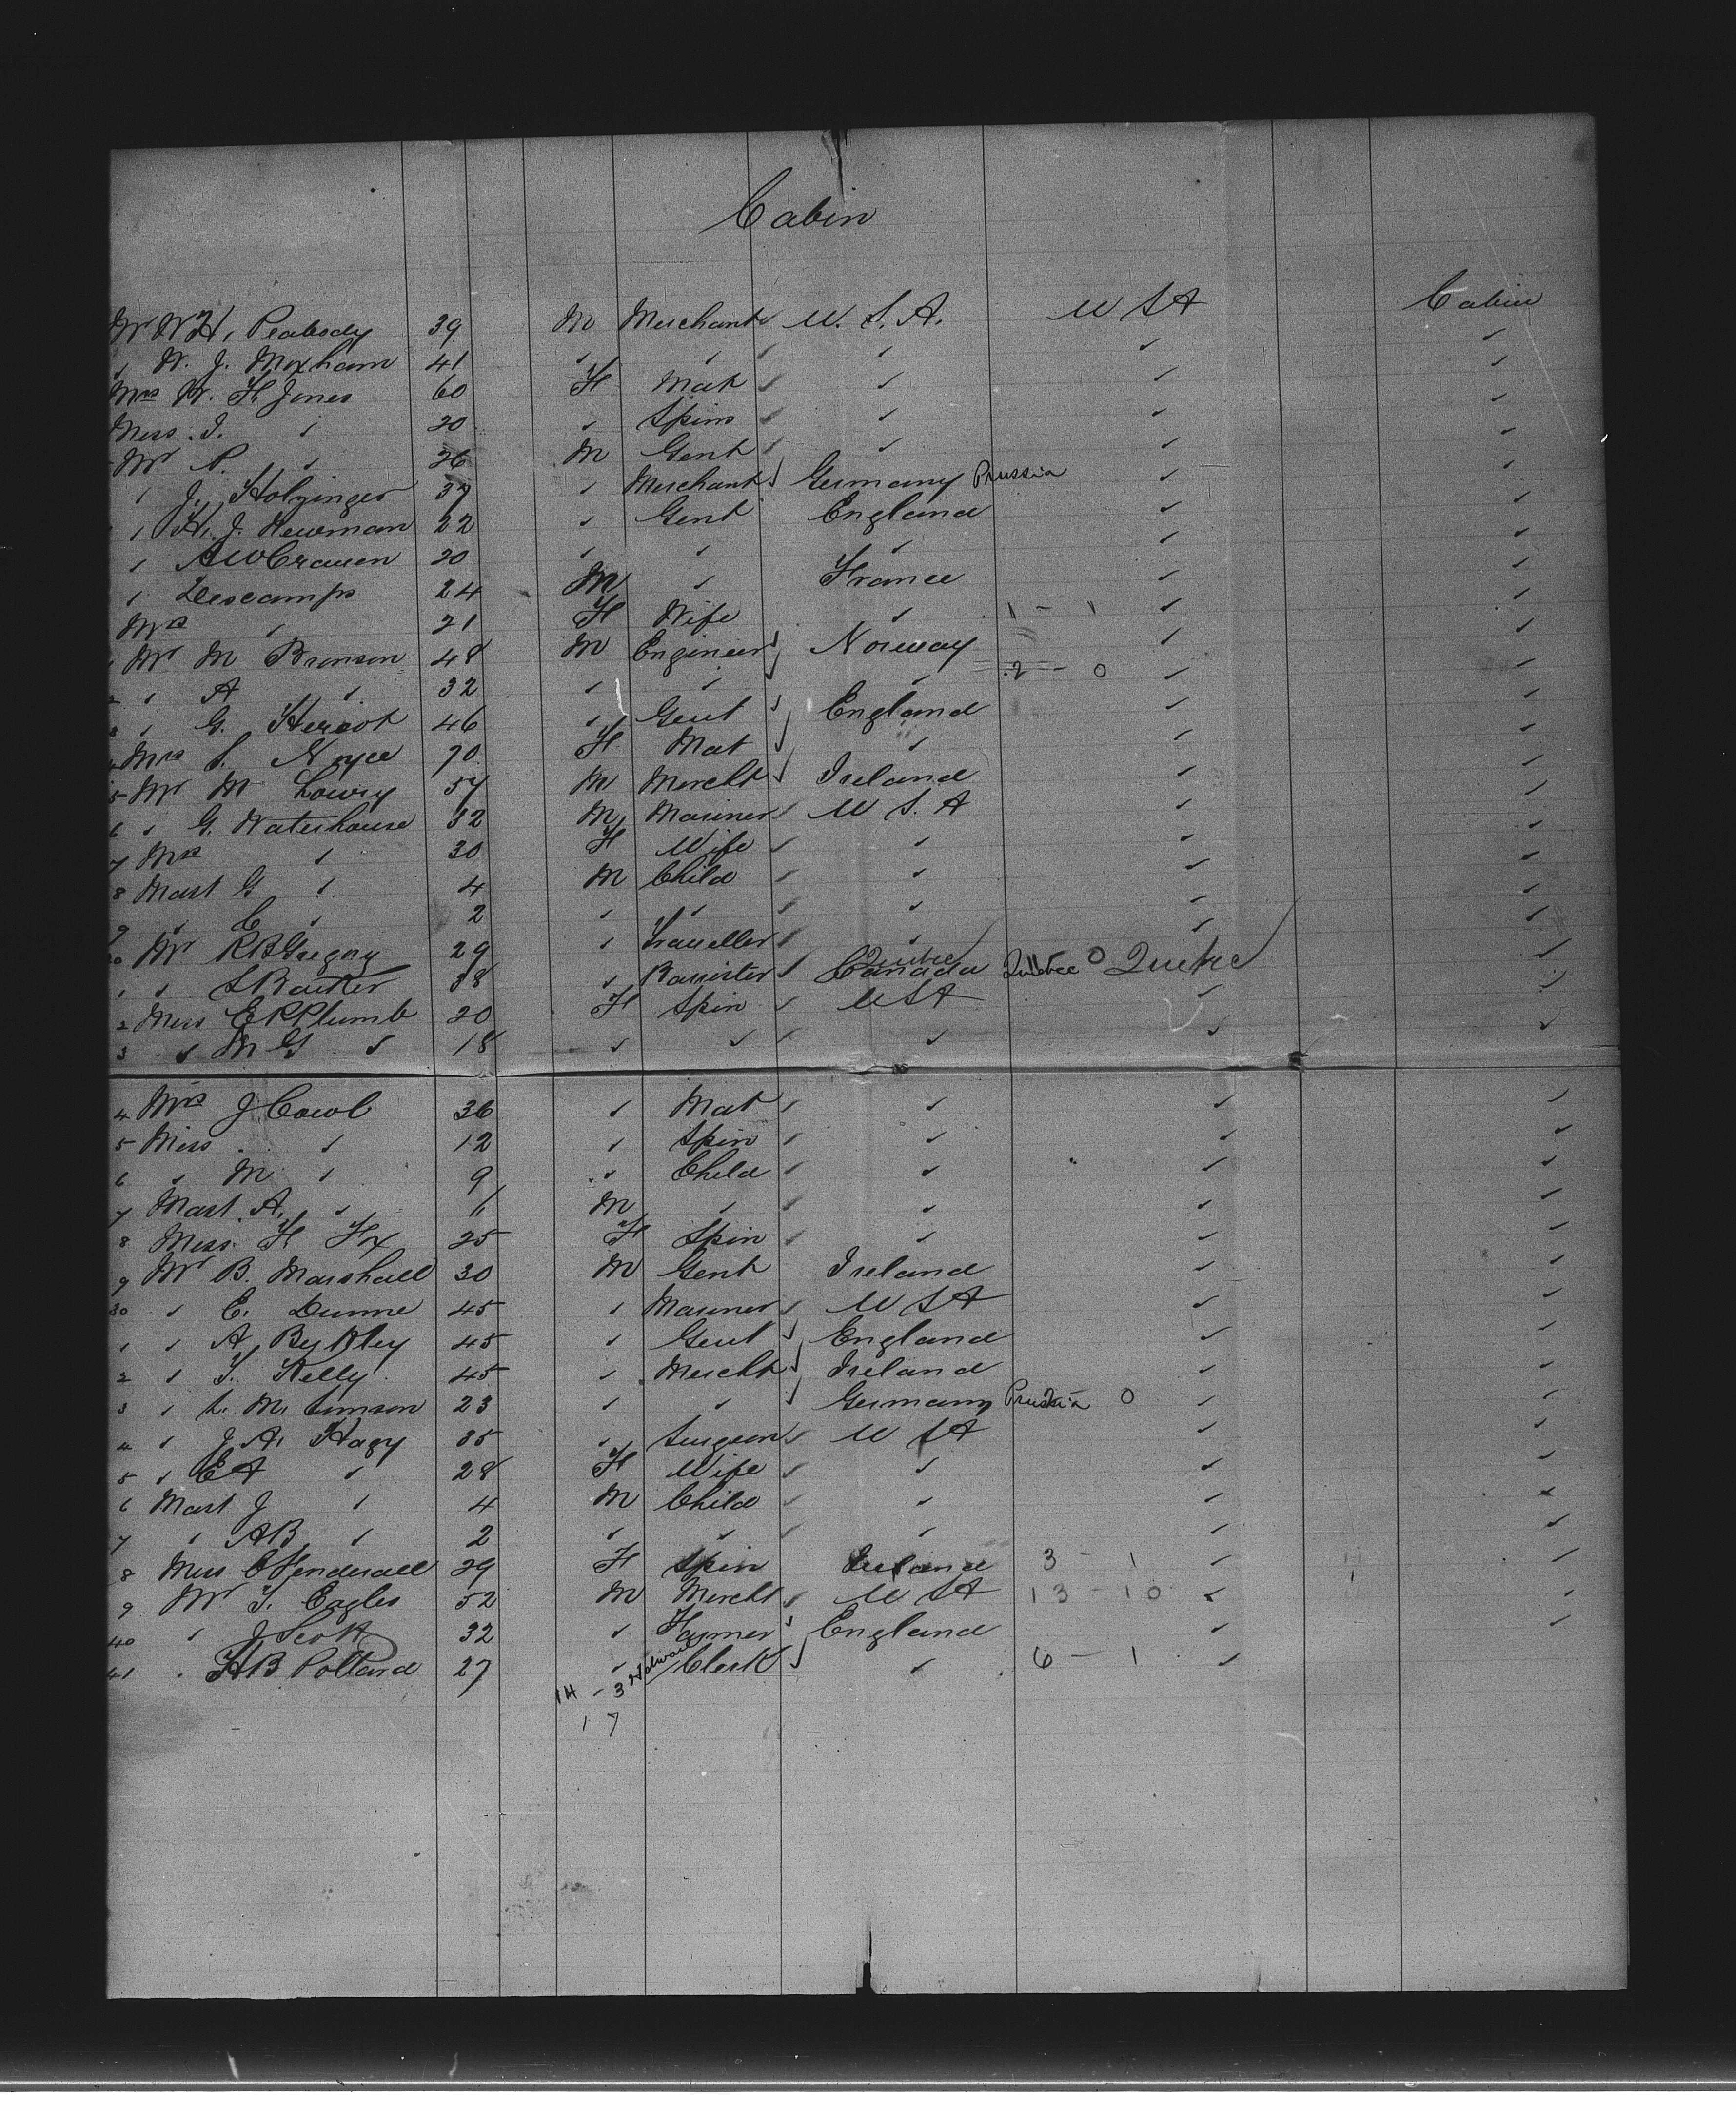 Cabin
Mr W H, Peabody 39 M Merchant U. S. A. U S A Cabin
✓ W. J. Moxham 41 ✓ ✓ ✓ ✓ ✓ ✓
Mrs W. H. Jones 60 F Mat ✓ ✓ ✓ ✓
Miss . I. ✓ 20 ✓ Spins ✓ ✓ ✓ ✓
Mr P. ✓ 26 M Gent ✓ ✓ ✓ ✓
✓ J. Holzinger 37 ✓ Merchant ✓ Germany Prussia ✓ ✓
✓ H. J. Newman 22 ✓ Gent England ✓ ✓
✓ A W Craven 20 ✓ ✓ ✓ ✓ ✓
✓ Descamps 24 M ✓ France ✓ ✓
Mrs ✓ 21 F Wife ✓ 1 - 1 ✓ ✓
1 Mr M Bronson 48 M Engineer ✓ Norway ✓ ✓
2 ✓ A ✓ 32 ✓ ✓ ✓ ✓ 2 - 0 ✓ ✓
3 ✓ G. Heriot 46 ✓ Gent ✓ England ✓ ✓
4 Mrs S. Noyce 70 F Mat ✓ ✓ ✓ ✓
5 Mr M Lowry 57 M Mercht ✓ Ireland ✓ ✓
6 ✓ G. Waterhouse 32 M Mariner ✓ U S. A ✓ ✓
7 Mrs ✓ 30 F Wife ✓ ✓ ✓ ✓
8 Mast G ✓ 4 M Child ✓ ✓ ✓ ✓
9 ✓ C ✓ 2 ✓ ✓ ✓ ✓ ✓ ✓
20 Mr R B Gregory 29 ✓ Traveller ✓ ✓ ✓ ✓
1 ✓ S Barker 38 ✓ Barrister ✓ Canada Quebec Quebec 0 Quebec ✓
2 Miss E R Plumb 20 F Spin ✓ U S A ✓ ✓
3 ✓ M G ✓ 18 ✓ ✓ ✓ ✓ ✓ ✓
4 Mrs J Cowl 36 ✓ Mat ✓ ✓ ✓ ✓
5 Miss ✓ 12 ✓ Spin ✓ ✓ ✓ ✓
6 ✓ M ✓ 9 ✓ Child ✓ ✓ ✓ ✓
7 Mast. A. ✓ M ✓ ✓ ✓ ✓ ✓
8 Miss. H Fox 25 F Spin ✓ ✓ ✓ ✓
9 Mr B. Marshall 30 M Gent Ireland ✓ ✓
30 ✓ E. Dunne 45 ✓ Mariner ✓ U S A ✓ ✓
1 ✓ A. 45 ✓ Gent ✓ England ✓ ✓
2 ✓ T. Kelly 45 ✓ Mercht ✓ Ireland ✓ ✓
3 ✓ L. M. Simson 23 ✓ ✓ ✓ Germany Prussia 0 ✓ ✓
4 ✓ J. A. Hagy 35 ✓ Surgeon ✓ U S A ✓ ✓
5 ✓ E A ✓ 28 F Wife ✓ ✓ ✓ ✓
6 Mast J ✓ 4 M Child ✓ ✓ ✓ ✓
7 ✓ A B ✓ 2 ✓ ✓ ✓ ✓ ✓ ✓
8 Miss C Hendervall 29 F Spin Ireland 3 - 1 ✓ ✓
9 Mr T. Eagles 52 M Mercht ✓ U S A 13 - 10 ✓ ✓
40 ✓ J Scott 32 ✓ Farmer ✓ England ✓ ✓
41 . H B Pollard 27 ✓ Clerk ✓ ✓ 6 - 1 ✓
14 - 3
1 7